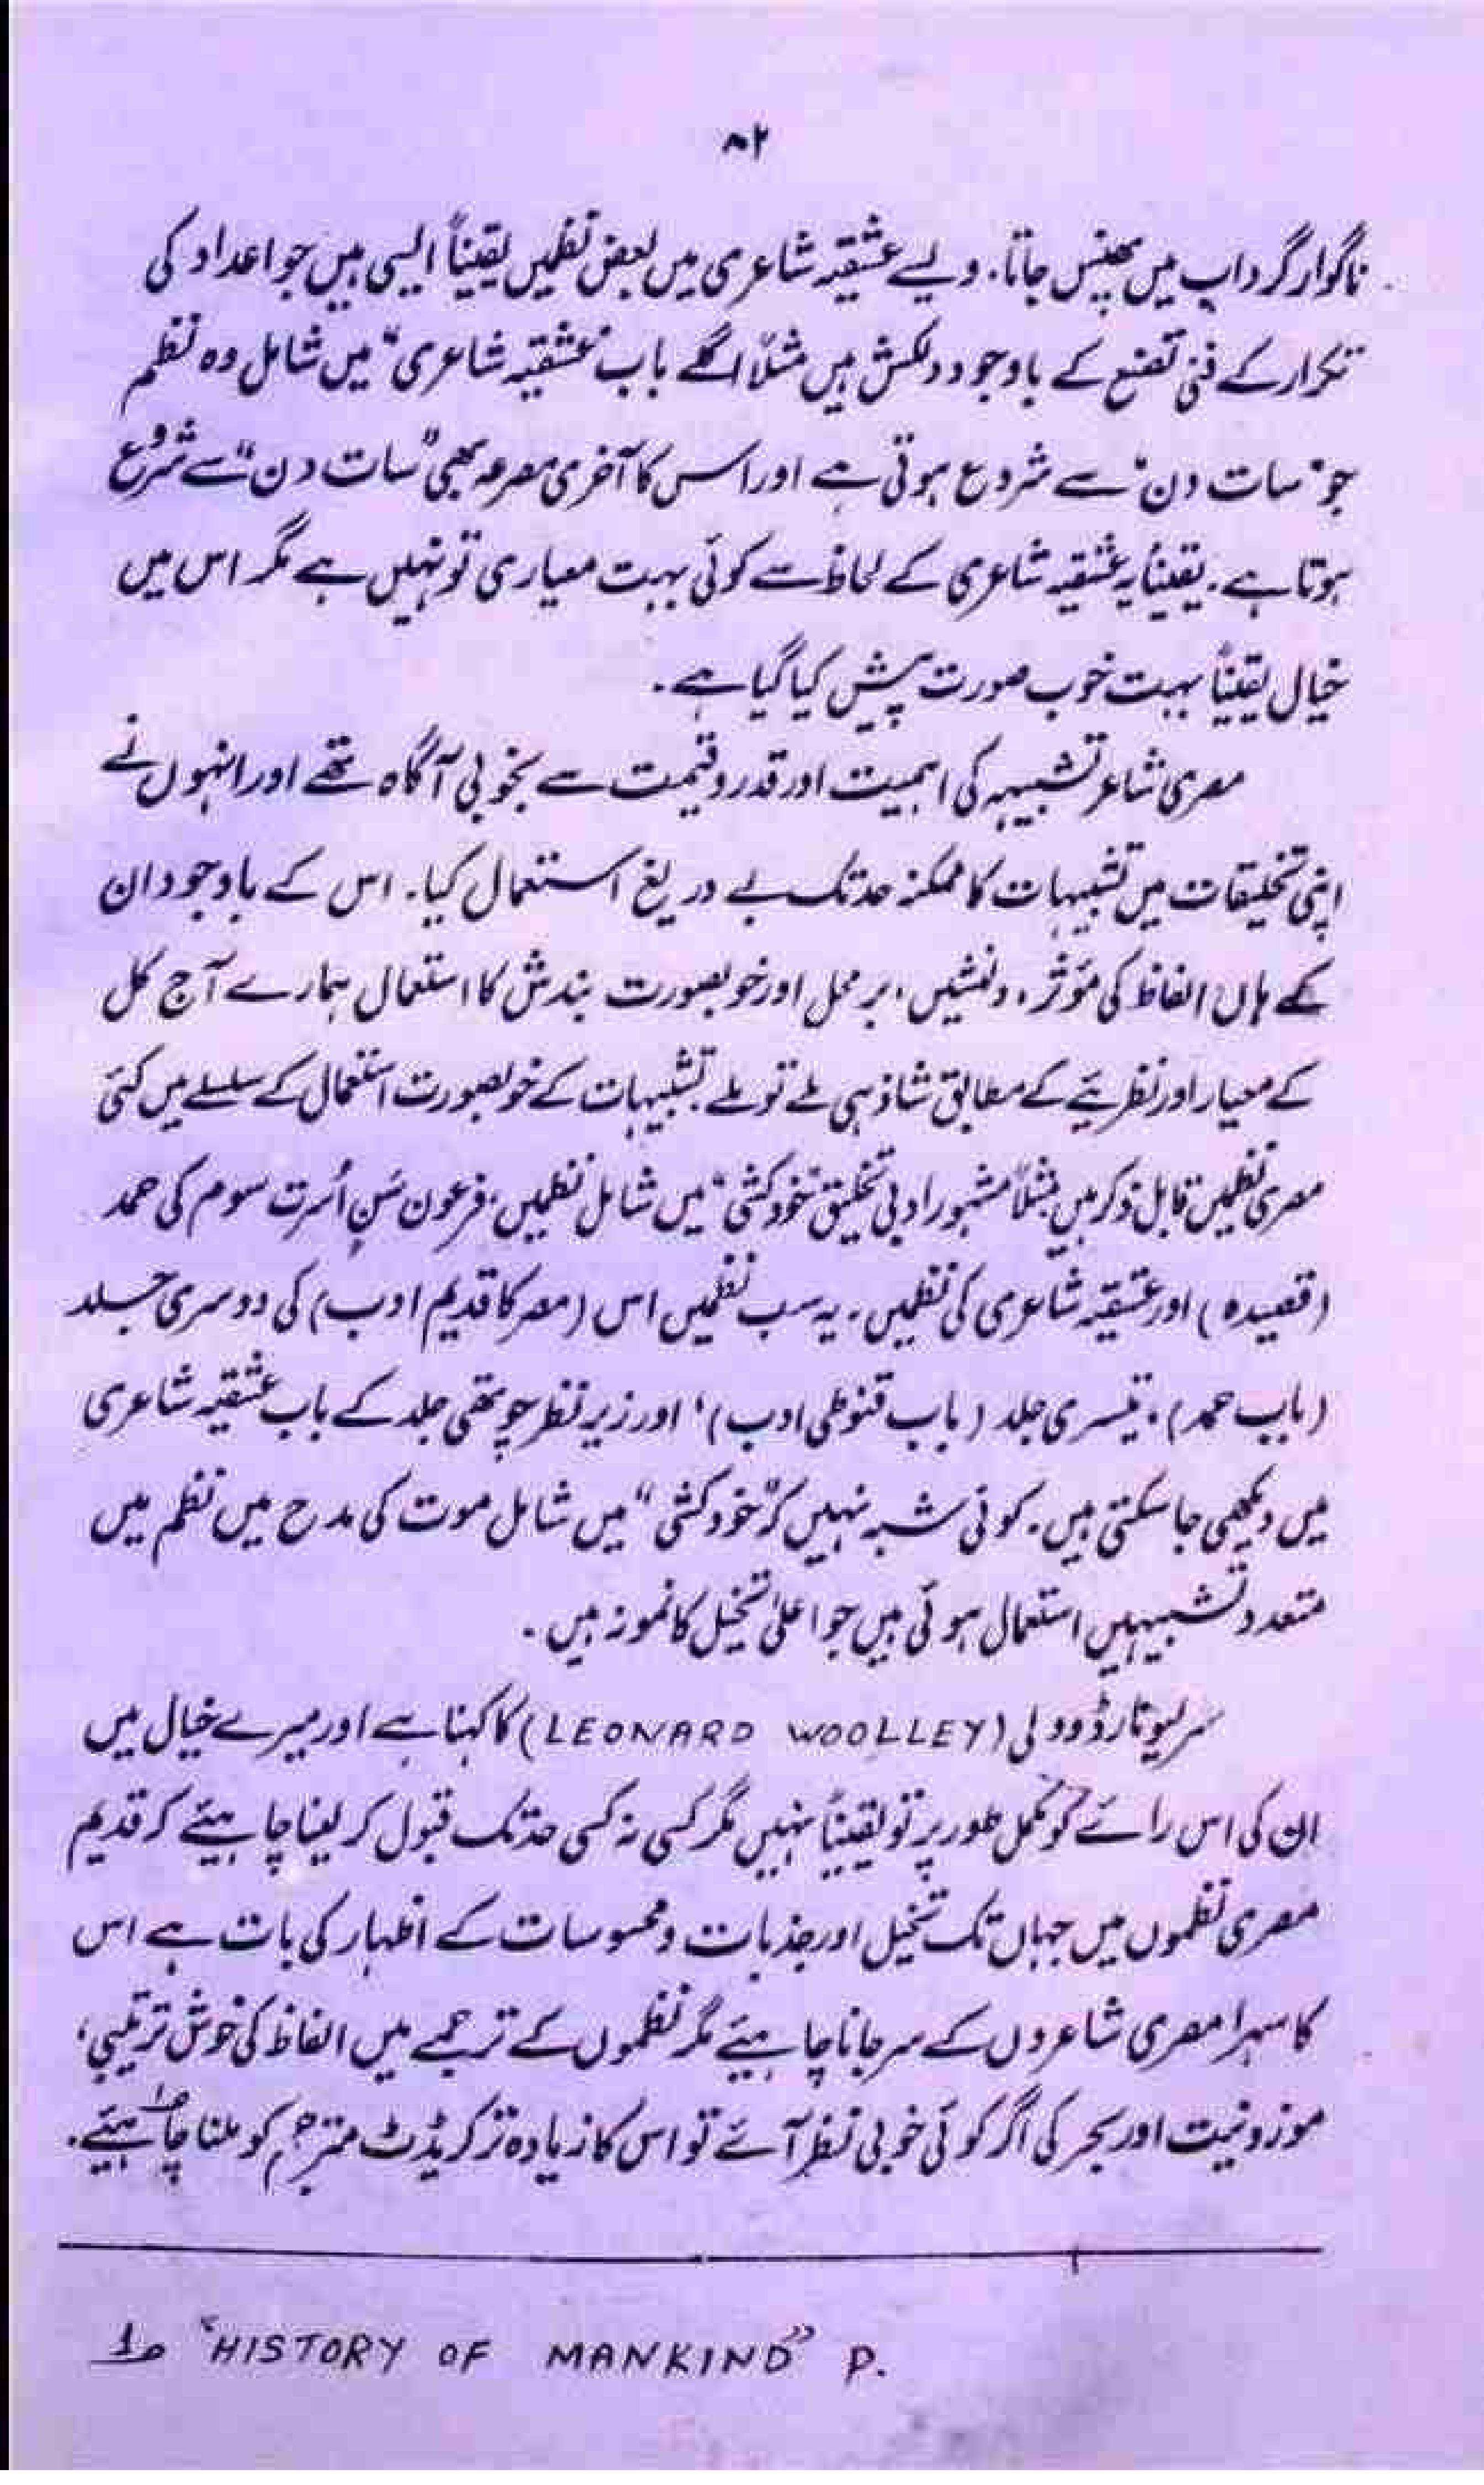 ۸۲
ناگوار گرداب میں پھنس جاتا. ویسے عشقیہ شاعری میں بعض نظمیں یقیناً ایسی ہیں جو اعداد کی
تکرار کے فنی تصنع کے باوجود دلکش ہیں مثلاً اگلے باب "عشقیہ شاعری" میں شامل وہ نظم
جو "سات دن" سے شروع ہوتی ہے اور اس کا آخری مصرعہ بھی "سات دن" سے شروع
ہوتا ہے. یقیناً یہ عشقیہ شاعری کے لحاظ سے کوئی بہت معیاری تو نہیں ہے مگر اس میں
خیال یقیناً بہت خوب صورت پیش کیا گیا ہے.
مصری شاعر تشبیہہ کی اہمیت اور قدر و قیمت سے بخوبی آگاہ تھے اور انہوں نے
اپنی تخلیقات میں تشبیہات کا ممکنہ حد تک بے دریغ استعمال کیا. اس کے باوجود ان
کے ہاں الفاظ کی مؤثر، دلنشیں، برمحل اور خوبصورت بندش کا استعمال ہمارے آج کل
کے معیار اور نظریئے کے مطابق شاذ ہی ملے تو ملے. تشبیہات کے خوبصورت استعمال کے سلسلے میں کئی
مصری نظمیں قابل ذکر ہیں مثلاً مشہور ادبی تخلیق "خودکشی" میں شامل نظمیں، فرعون سَن اُسرت سوم کی حمد
(قصیدہ) اور عشقیہ شاعری کی نظمیں. یہ سب نظمیں اس (مصر کا قدیم ادب) کی دوسری جلد
(باب حمد)، تیسری جلد (باب قنوطی ادب)، اور زیر نظر چوتھی جلد کے باب عشقیہ شاعری
میں دیکھی جا سکتی ہیں. کوئی شبہ نہیں کہ "خودکشی" میں شامل موت کی مدح میں نظم میں
متعدد تشبیہیں استعمال ہوئی ہیں جو اعلیٰ تخیل کا نمونہ ہیں.
سر لیونارڈ وولی (LEONARD WOOLLEY) کا کہنا ہے اور میرے خیال میں
ان کی اس رائے کو مکمل طور پر تو یقیناً نہیں مگر کسی نہ کسی حد تک قبول کر لینا چاہیئے کہ قدیم
مصری نظموں میں جہاں تک تخیل اور جذبات و محسوسات کے اظہار کی بات ہے اس
کا سہرا مصری شاعروں کے سر جانا چاہیئے مگر نظموں کے ترجمے میں الفاظ کی خوش ترتیبی،
موزونیت اور بحر کی اگر کوئی خوبی نظر آئے تو اس کا زیادہ تر کریڈٹ مترجم کو ملنا چاہیئے.
1 "HISTORY OF MANKIND" P.